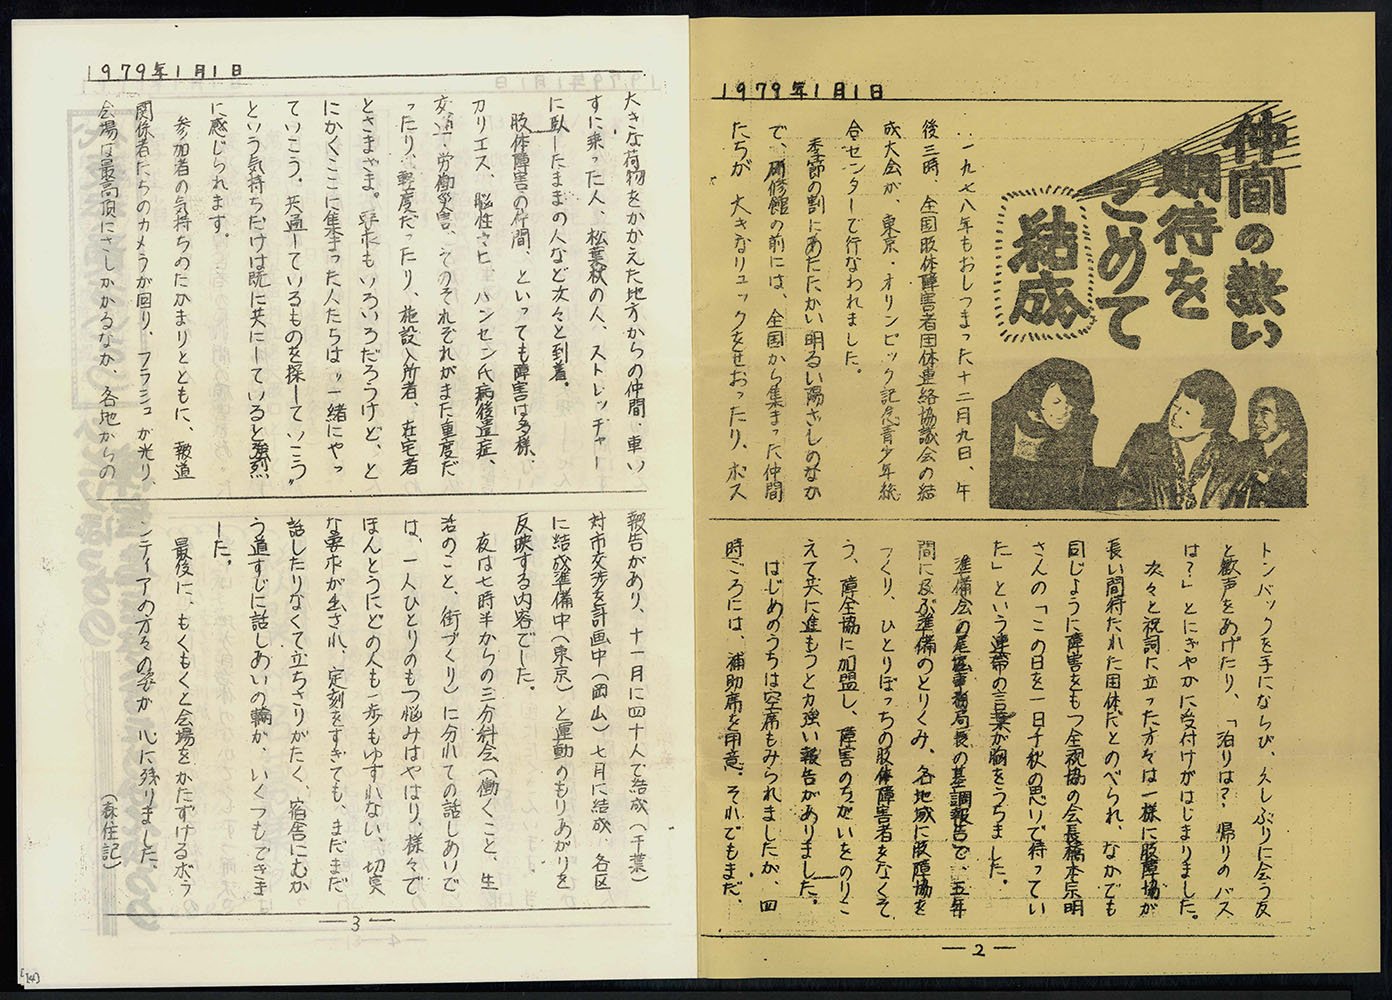 1979年1月1日
仲間の熱い
期待を
こめて
結成
一九七八年もおしつまった十二月九日、午
後三時、全国肢体障害者団体連絡協議会の結
成大会が、東京・オリンピック記念青少年総
合センターで行なわれました。
季節の割にあたたかい明るい陽ざしのなか
で、研修館の前には、全国から集まった仲間
たちが、大きなリュックをせおったり、ボス
トンバックを手にならび、久しぶりに会う友
と歓声をあげたり、「泊りは?帰りのバス
は?」とにぎやかに受付けがはじまりました。
次々と祝詞に立った方々は一様に肢障協が
長い間待たれた団体だとのべられ、なかでも
同じように障害をもつ全視協の会長橋本宗明
さんの「この日を一日千秋の思いで待ってい
た」という連帯の言葉が胸をうちました。
準備会の尾崎事務局長の基調報告で、五年
間に及ぶ準備のとりくみ、各地域に肢障協を
つくり、ひとりぼっちの肢体障害者をなくそ
う、障全協に加盟し、障害のちがいをのりこ
えて共に進もうと力強い報告がありました。
はじめのうちは空席もみられましたが、四
時ごろには、補助席を用意。それでもまだ、
—2—
1979年1月1日
大きな荷物をかかえた地方からの仲間、車い
すに乗った人、松葉杖の人、ストレッチャー
に臥したままの人など次々と到着。
肢体障害の仲間、といっても障害は多様、
カリエス、脳性マヒ、ハンセン氏病後遺症、
交通・労働災害、そのそれぞれがまた重度だ
ったり、軽度だったり、施設入所者、在宅者
とさまざま。要求もいろいろだろうけど、と
にかくここに集まった人たちは〃一緒にやっ
ていこう。共通しているものを探していこう〃
という気持ちだけは既に共にしていると強烈
に感じられます。
参加者の気持ちのたかまりとともに、報道
関係者たちのカメラが回り、フラッシュが光り、
会場は最高頂にさしかかるなか、各地からの
報告があり、十一月に四十人で結成(千葉)
対市交渉を計画中(岡山)七月に結成、各区
に結成準備中(東京)と運動のもりあがりを
反映する内容でした。
夜は七時半からの三分科会(働くこと、生
活のこと、街づくり)に分れての話しあいで
は、一人ひとりのもつ悩みはやはり、様々で
ほんとうにどの人も一歩もゆずれない、切実
な要求が出され、定刻をすぎても、まだまだ
話したりなくて立ちさりがたく、宿舎にむか
う道すじに話しあいの輪が、いくつもできま
した。
最後に、もくもくと会場をかたずけるボラ
ンティアの方々の姿が心に残りました。
(森住記)
—3—